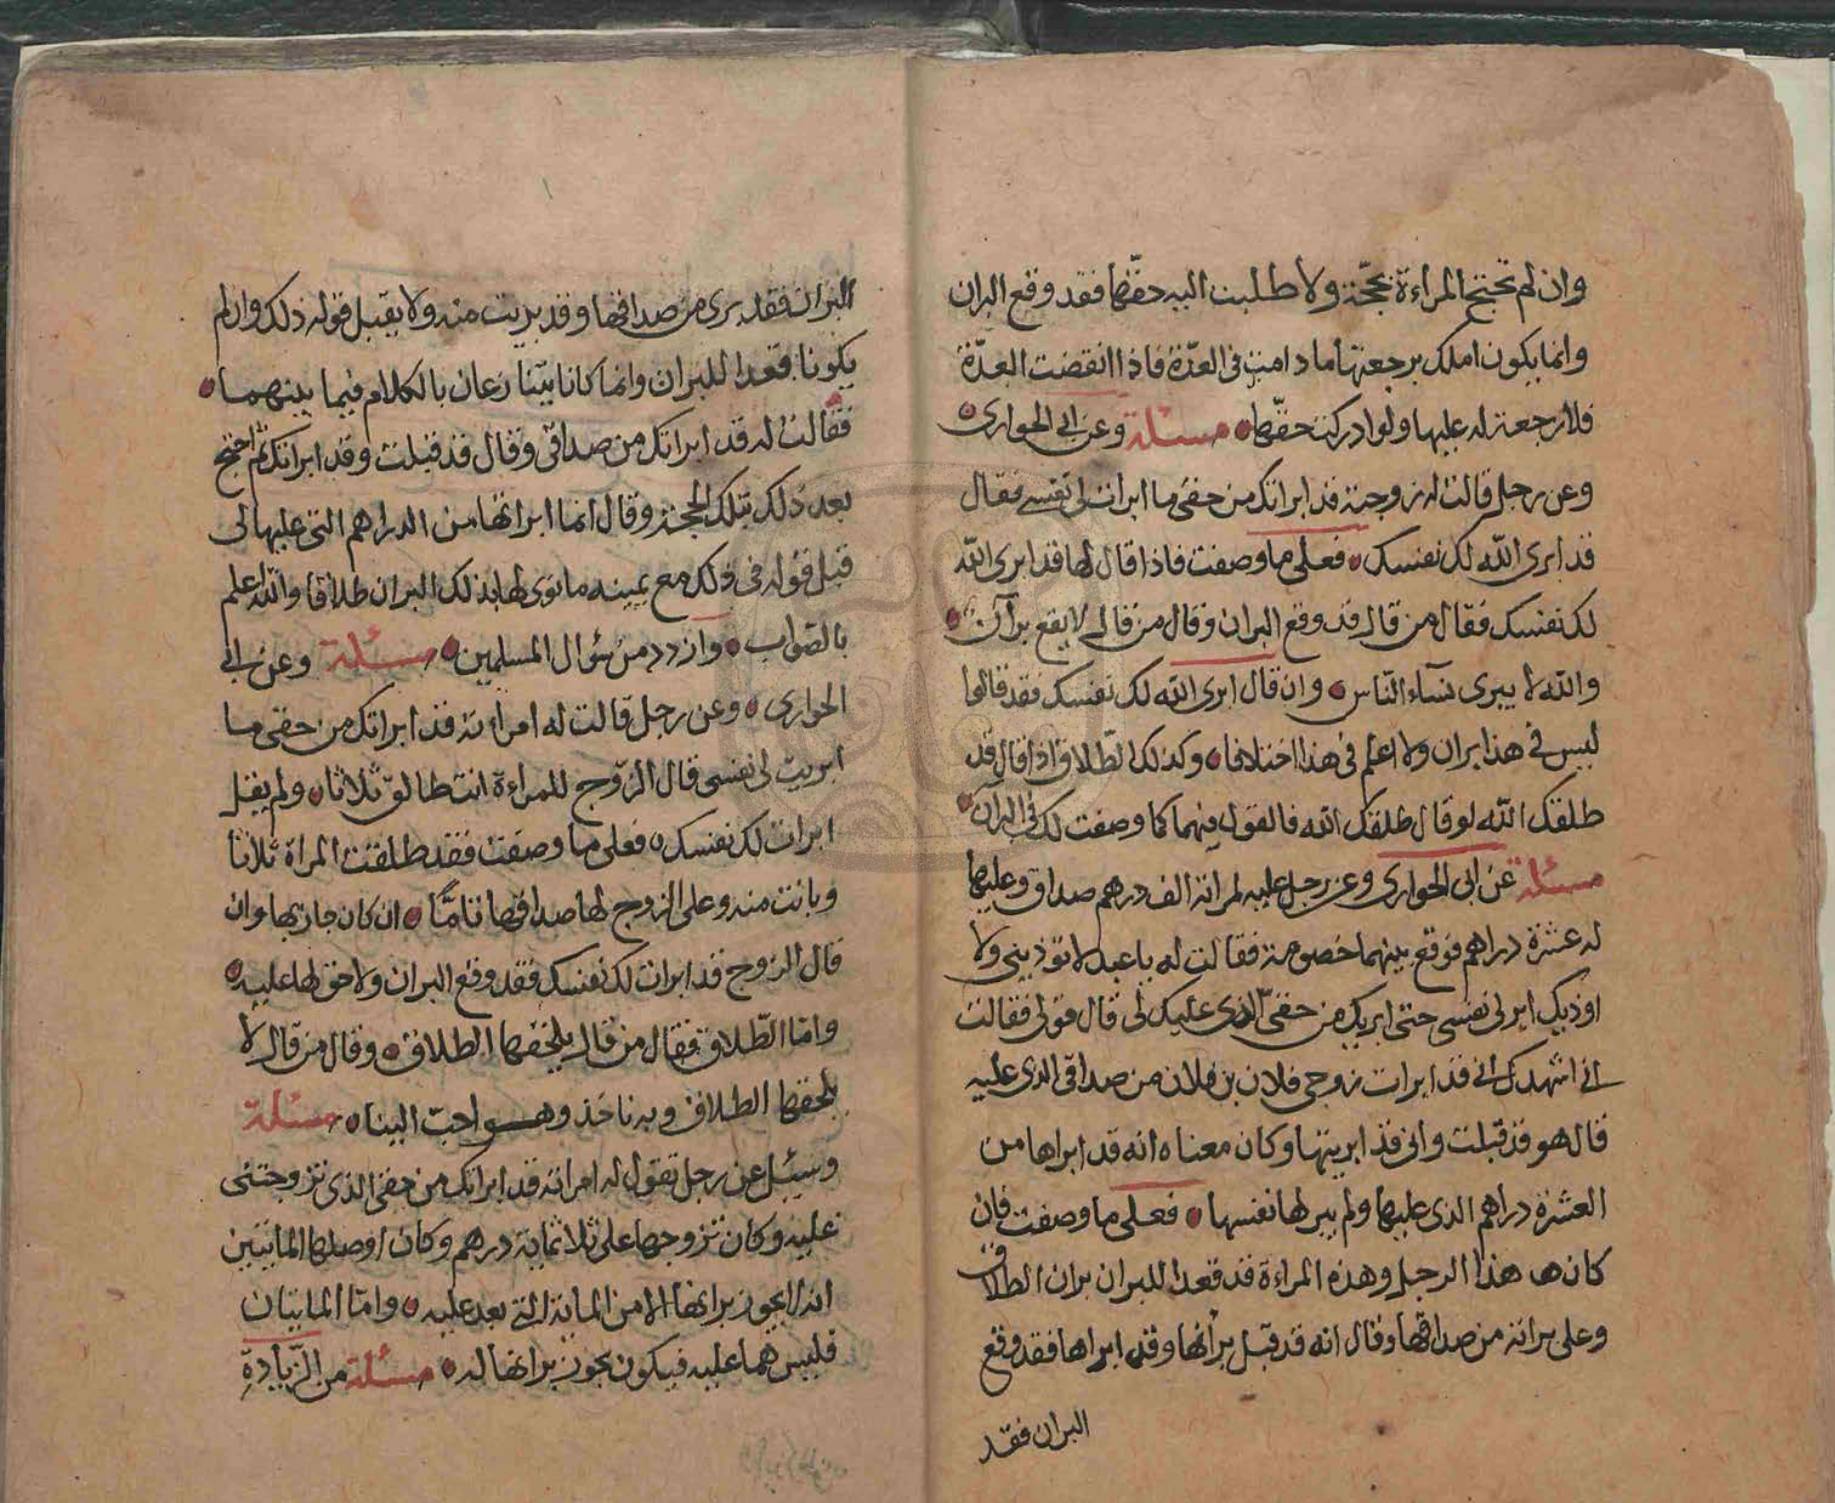 وان لم تحتج المراءة بحجّة ولا طلبت اليه حقّها فقد وقع البران
وانما يكون املك برجعتها ما دامت في العدّة فاذا انقضت العدّة
فلا رجعة له عليها ولو ادركت حقّها مسئلة وعن ابي الحواري
وعن رجل قالت له زوجته قد ابراتك من حقي ما ابرات لي نفسي فقال
قد ابرى الله لك نفسك فعلى ما وصفت فاذا قال لها قد ابرى الله
لك نفسك فقال من قال قد وقع البران وقال من قال لا يقع برآن
والله لا يبرى نسآء النّاس وان قال ابرى الله لك نفسك فقد قالوا
ليس في هذا بران ولا اعلم في هذا اختلافا وكذلك الطّلاق اذا قال قد
طلقك الله لو قال طلقك الله فالقول فيهما كما وصفت لك في البرآن
مسئلة عن ابي الحواري وعن رجل عليه لمراته الف درهم صداق وعليها
له عشرة دراهم فوقع بينهما خصومة فقالت له يا عبد لا توذيني ولا
اوذيك ابر لي نفسي حتى ابريك من حقي الذي عليك لي قال قولي فقالت
اني اشهدك اني قد ابرات زوجي فلان بن فلان من صداقي الذي عليه
قال هو قد قبلت واني قد ابريتها وكان معناه انه قد ابراها من
العشرة دراهم الذي عليها ولم يبر لها نفسها فعلى ما وصفت فان
كان هذا الرجل وهذه المراءة قد قعدا للبران بران الطلاق
وعلى براته من صداقها وقال انه قد قبل برآنها وقد ابراها فقد وقع
البران فقد
البران فقد برى من صداقها وقد بريت منه ولا يقبل قوله ذلك وان لم
يكونا قعدا للبران وانما كانا يتنازعان بالكلام فيما بينهما
فقالت له قد ابراتك من صداقي وقال قد قبلت وقد ابراتك ثم احتج
بعد ذلك بتلك الحجة وقال انما ابراتها من الدراهم التي عليها لي
قبل قوله في ذلك مع يمينه ما نوى لها بذلك البران طلاقا والله اعلم
بالصّواب وازدد من سؤال المسلمين مسئلة وعن ابي
الحواري وعن رجل قالت له امراته قد ابراتك من حقي ما
ابريت لي نفسي قال الزّوج للمراءة انت طالق ثلاثا ولم يقل
ابرات لك نفسك فعلى ما وصفت فقد طلقت المراة ثلاثا
وبانت منه وعلى الزوج لها صداقها تامّا ان كان جاز بها وان
قال الزوج قد ابرات لك نفسك فقد وقع البران ولا حق لها عليه
وامّا الطّلاق فقال من قال يلحقها الطلاق وقال من قال لا
يلحقها الطلاق وبه ناخذ وهو احبّ الينا مسئلة
وسئل عن رجل تقول له امراته قد ابراتك من حقي الذي تزوجتني
عليه وكان تزوجها على ثلاثماية درهم وكان اوصلها المايتين
انه لا يجوز برانها الا من الماية التي بعد عليه وامّا المايتان
فليس هما عليه فيكون يجوز برانها له مسئلة من الزّيادة